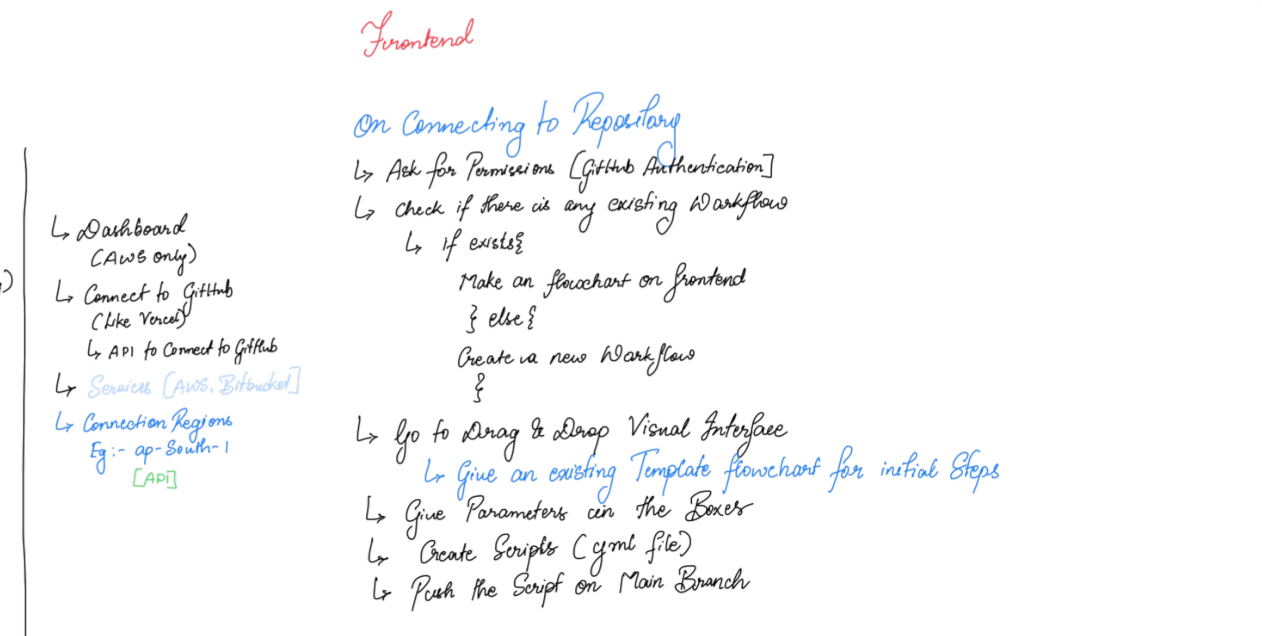 Frontend
)
↳ Dashboard
(AWS only)
↳ Connect to GitHub
(Like Vercel)
↳ API to Connect to GitHub
↳ Services [AWS, Bitbucket]
↳ Connection Regions
Eg:- ap-South-1
[API]
On Connecting to Repository
↳ Ask for Permissions [GitHub Authentication]
↳ check if there is any existing Workflow
↳ if exists{
Make an flowchart on frontend
} else {
Create a new Workflow
}
↳ Go to Drag & Drop Visual Interface
↳ Give an existing Template flowchart for initial Steps
↳ Give Parameters in the Boxes
↳ Create Scripts (yml file)
↳ Push the Script on Main Branch